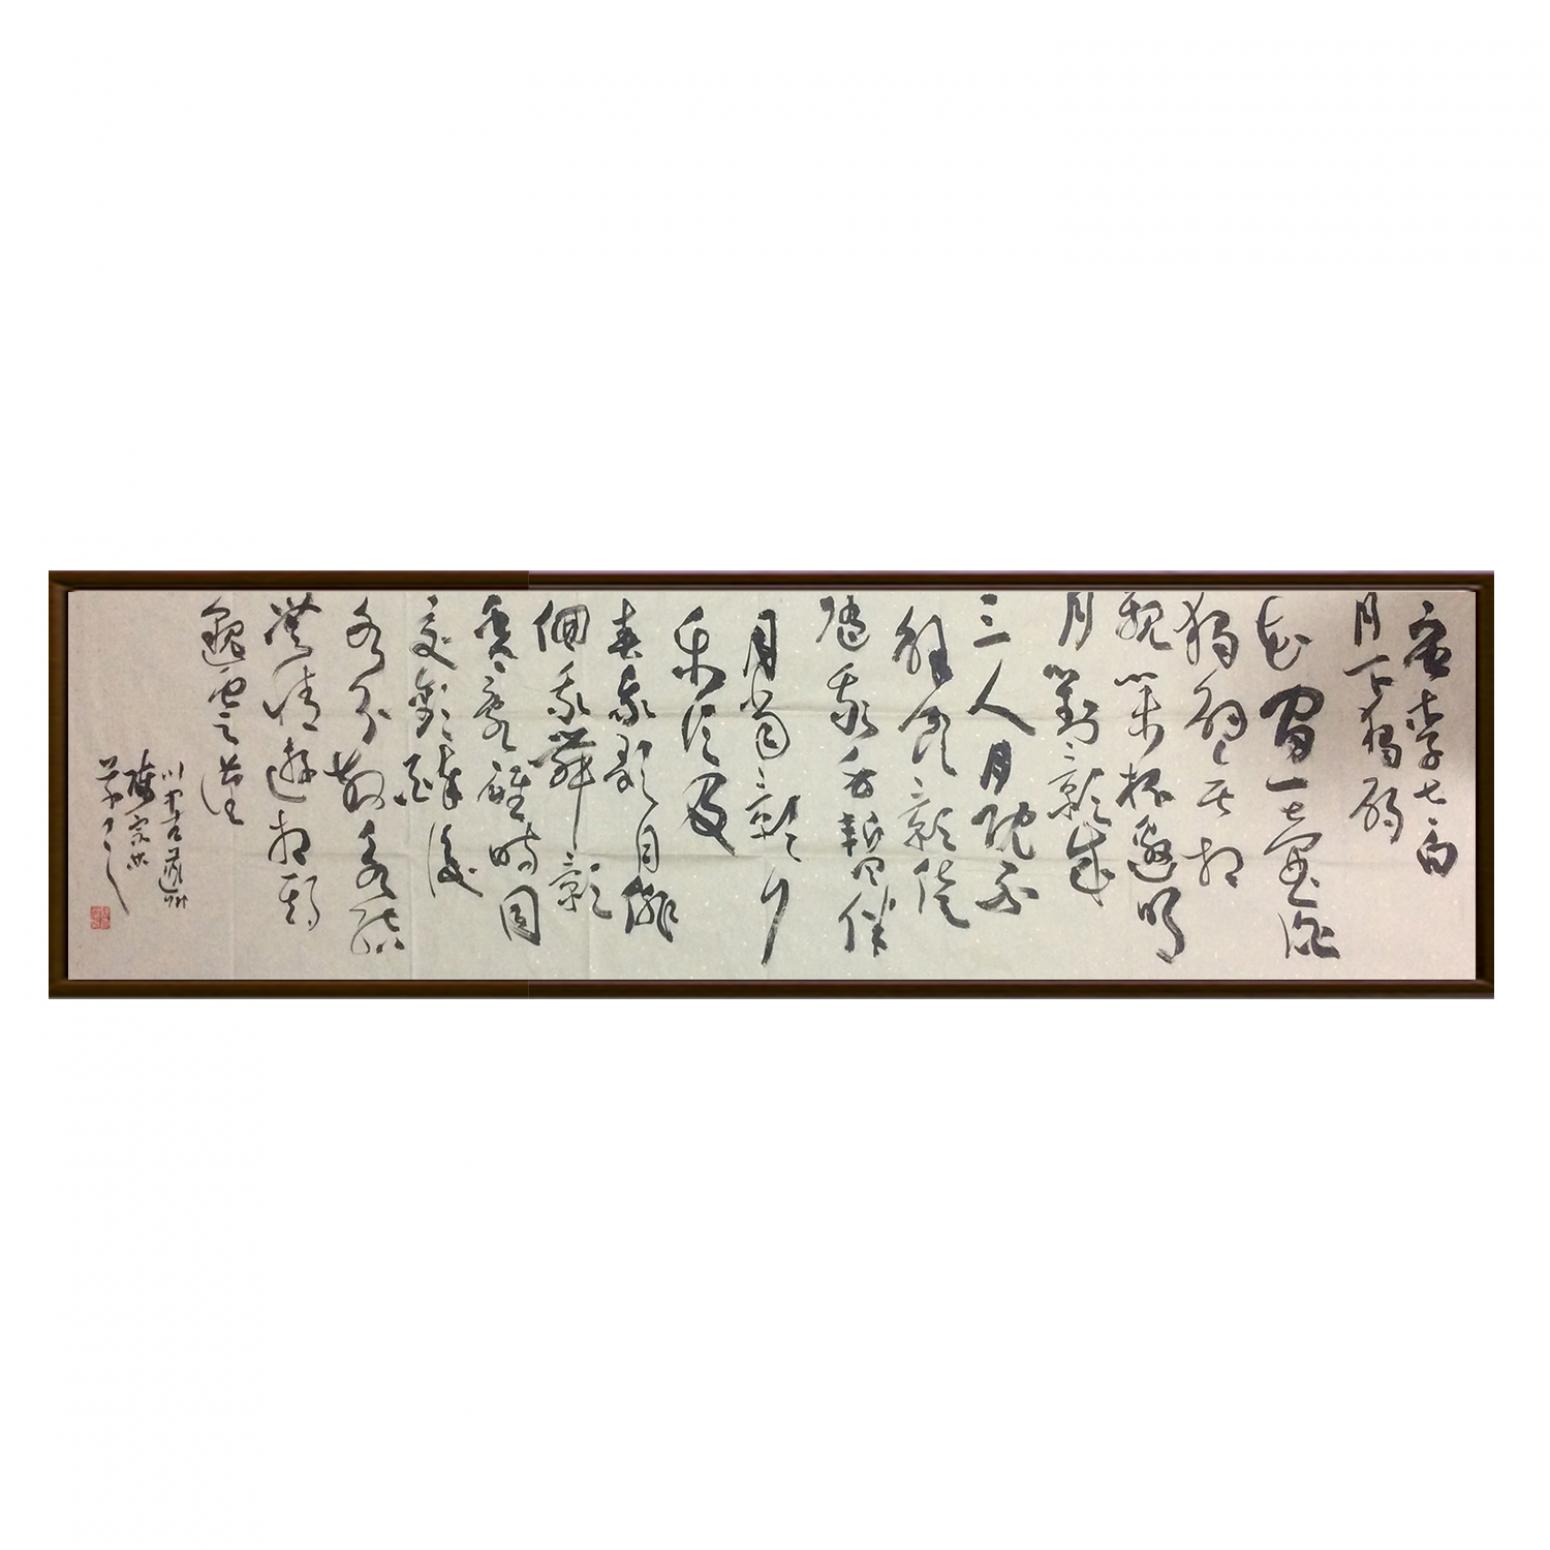 唐李太白
月下獨酌
花間一壺酒
獨酌無相
親舉杯邀明
月對影成
三人月既不
解飲影徒
隨我身暫伴
月將影行
樂須及
春我歌月徘
徊我舞影
零亂醒時同
交歡醉後
各分散永結
無情遊相期
邈雲漢